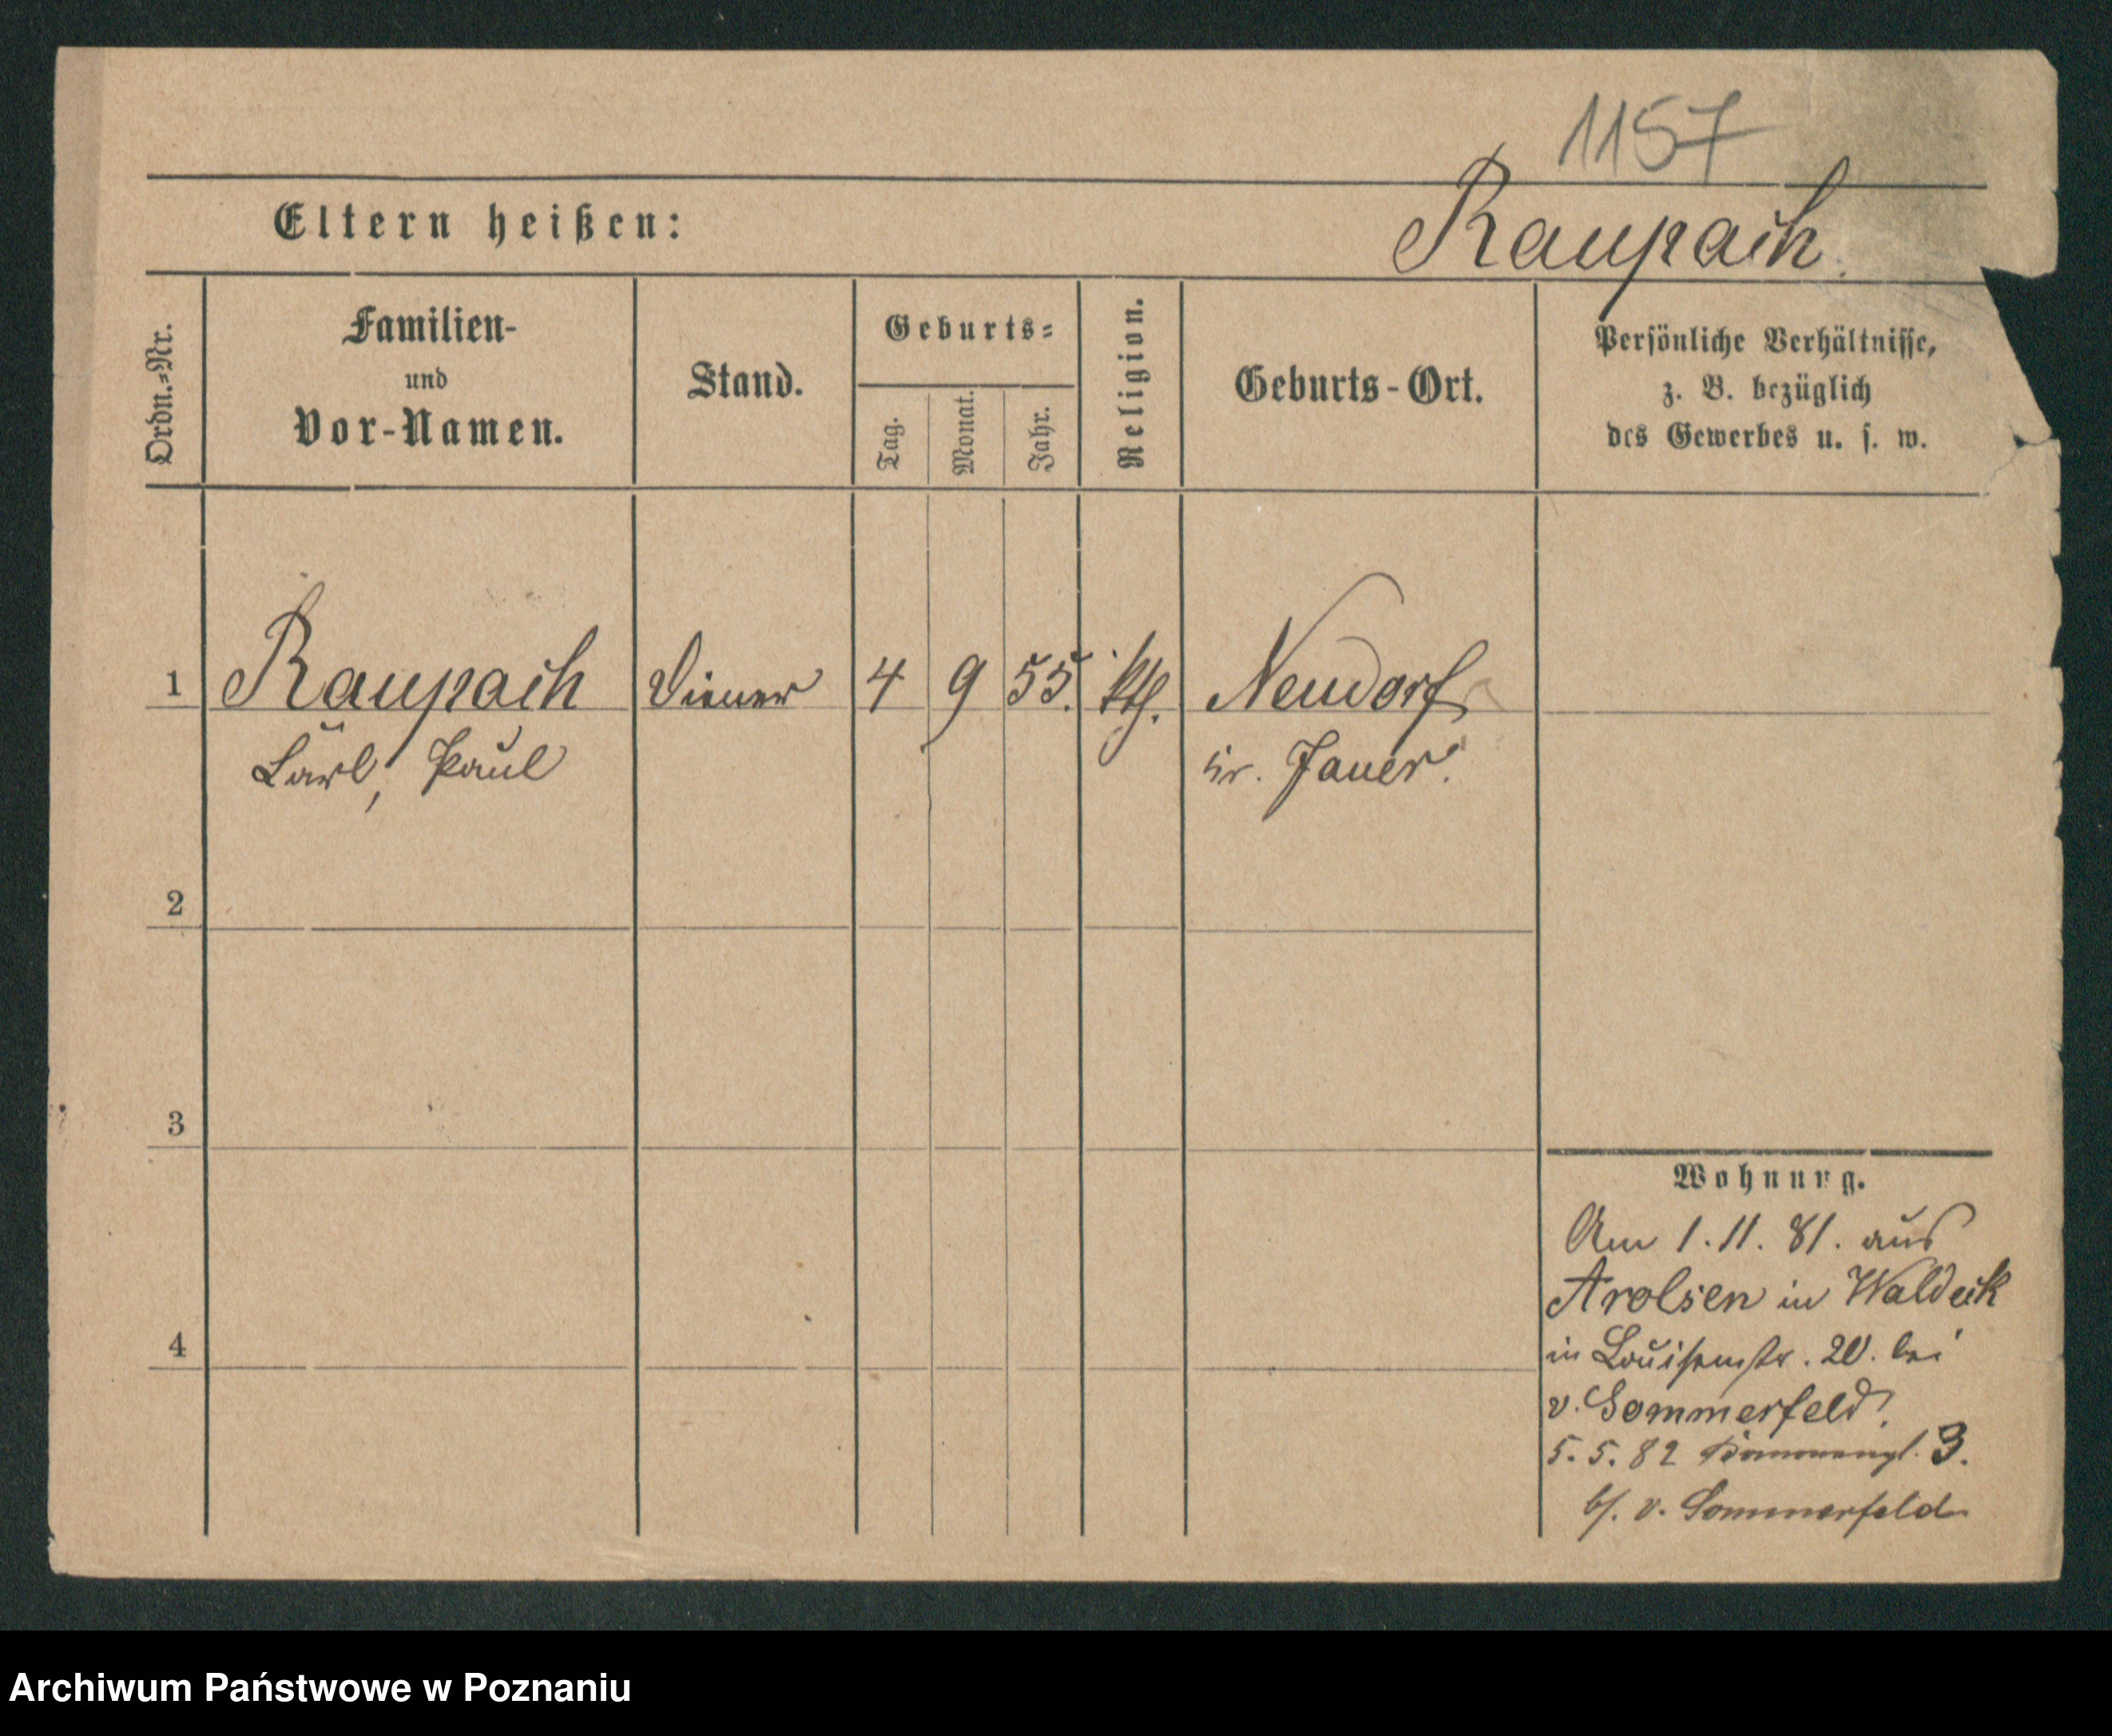 1157
Eltern heißen: Raupach.
Ordn.=Nr.
Familien-
und
Vor-Namen.
Stand.
Geburts=
Tag.
Monat.
Jahr.
Religion.
Geburts-Ort.
Persönliche Verhältnisse,
z. B. bezüglich
des Gewerbes u. s. w.
1 Raupach Diener 4 9 55. kth. Neudorf
Carl, Paul Kr. Jauer.
2
3
4
Wohnung.
Am 1. 11. 81. aus
Arolsen in Waldeck
in Louisenstr. 20. bei
v. Sommerfeld.
5. 5. 82 3.
b/. v. Sommerfeld
Archiwum Państwowe w Poznaniu